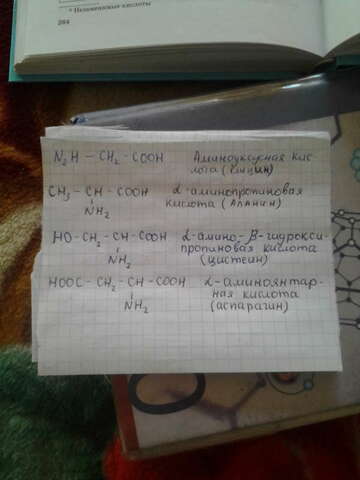 * Незаменимые кислоты
284
N₂H – CH₂ – COOH Аминоуксусная кис
лота (Глицин)
CH₃ – CH – COOH α-аминопропионовая
NH₂ кислота (Аланин)
HO – CH₂ – CH – COOH α-амино-β-гидрокси-
NH₂ пропионовая кислота
(цистеин)
HOOC – CH₂ – CH – COOH α-аминоянтар-
NH₂ ная кислота
(аспарагин)